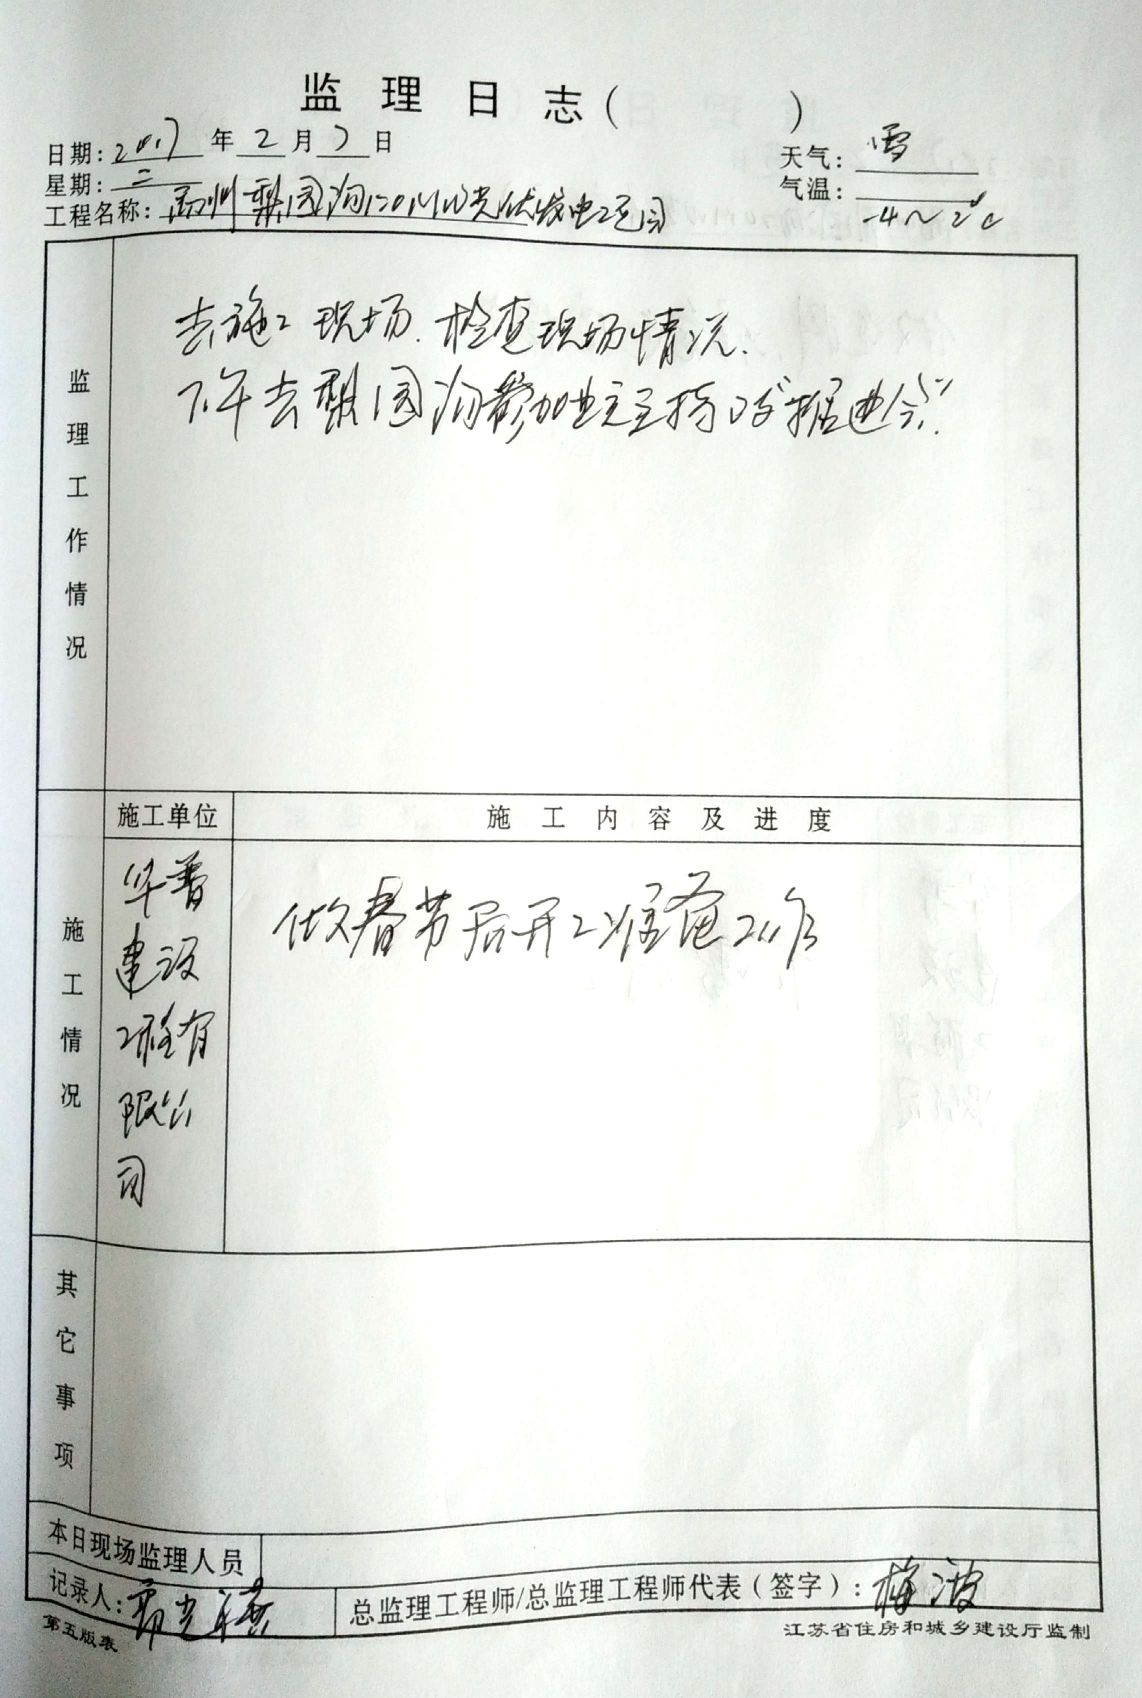 监理日志（　　）
日期：2017年2月7日
天气：雪
星期：二
气温：-4～2℃
工程名称：禹州梨园沟120MW光伏发电项目
监理工作情况
去施工现场.检查现场情况.
下午去梨园沟参加业主主持的"推进会".
施工单位
施工内容及进度
施工情况
华普
建设
工程有
限公
司
做春节后开工准备工作
其它事项
本日现场监理人员
记录人：
总监理工程师/总监理工程师代表（签字）：梅波
第五版表
江苏省住房和城乡建设厅监制